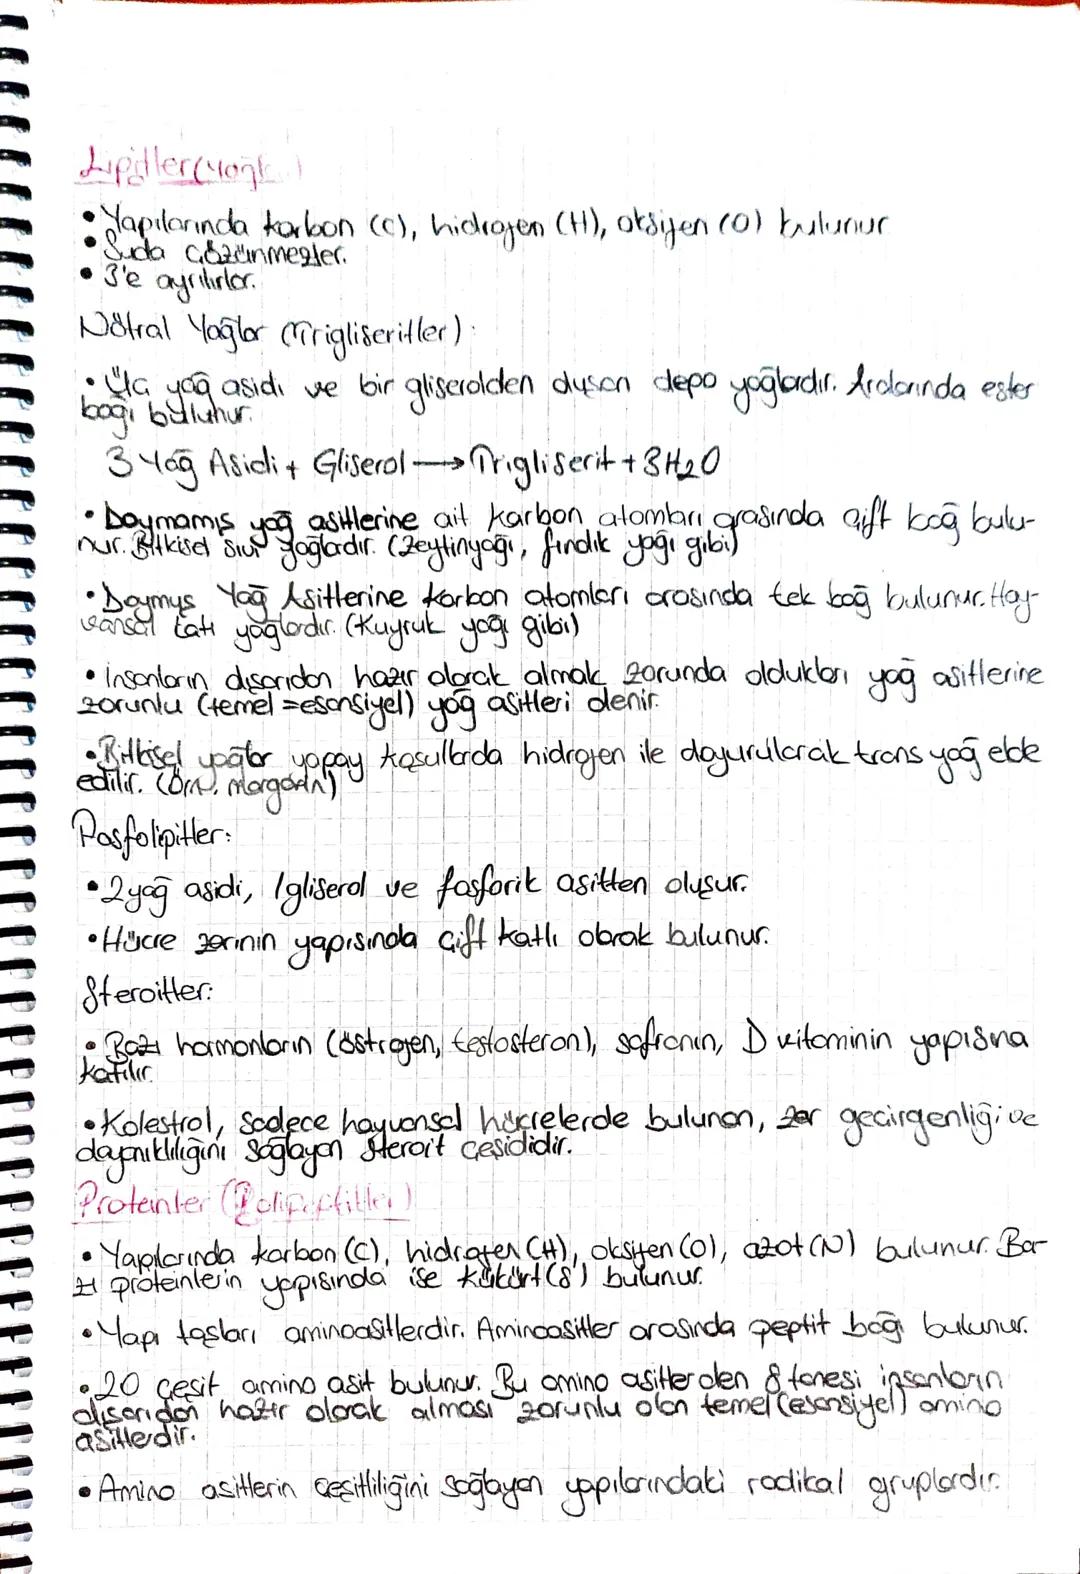 Lipitler (Yağl
• Yapılarında karbon (C), hidrojen (H), oksijen (O) bulunur
• Suda çözünmezler.
• 3'e ayrılırlar.
Nötral Yağlar (Trigliseritler):
• Üç yağ asidi ve bir gliserolden oluşan depo yağlardır. Aralarında ester
bağı bulunur.
3 Yağ Asidi + Gliserol → Trigliserit + 3H₂O
• Doymamış yağ asitlerine ait karbon atomları arasında çift bağ bulu-
nur. Bitkisel sıvı yağlardır. (Zeytinyağı, fındık yağı gibi)
• Doymuş Yağ Asitlerine karbon atomları arasında tek bağ bulunur. Hay-
vansal katı yağlardır. (Kuyruk yağı gibi)
• İnsanların dışarıdan hazır olarak almak zorunda oldukları yağ asitlerine
zorunlu (temel = esansiyel) yağ asitleri denir.
• Bitkisel yağlar yapay koşullarda hidrojen ile doyurularak trans yağ elde
edilir. (Örn. margarin)
Fosfolipitler:
• 2 yağ asidi, 1 gliserol ve fosforik asitten oluşur.
• Hücre zarının yapısında çift katlı olarak bulunur.
Steroitler:
• Bazı hormonların (östrojen, testosteron), safranın, D vitaminin yapısına
katılır.
• Kolestrol, Sadece hayvansal hücrelerde bulunan, zar geçirgenliği ve
dayanıklılığını sağlayan steroit çeşididir.
Proteinler (Polipeptitler)
• Yapılarında karbon (C), hidrojen (H), oksijen (O), azot (N) bulunur. Ba-
zı proteinlerin yapısında ise kükürt (S) bulunur.
• Yapı taşları aminoasitlerdir. Aminoasitler arasında peptit bağı bulunur.
• 20 çeşit amino asit bulunur. Bu amino asitlerden 8 tanesi insanların
dışarıdan hazır olarak alması zorunlu olan temel (esansiyel) amino
asitlerdir.
• Amino asitlerin çeşitliliğini sağlayan yapılarındaki radikal gruplardır.